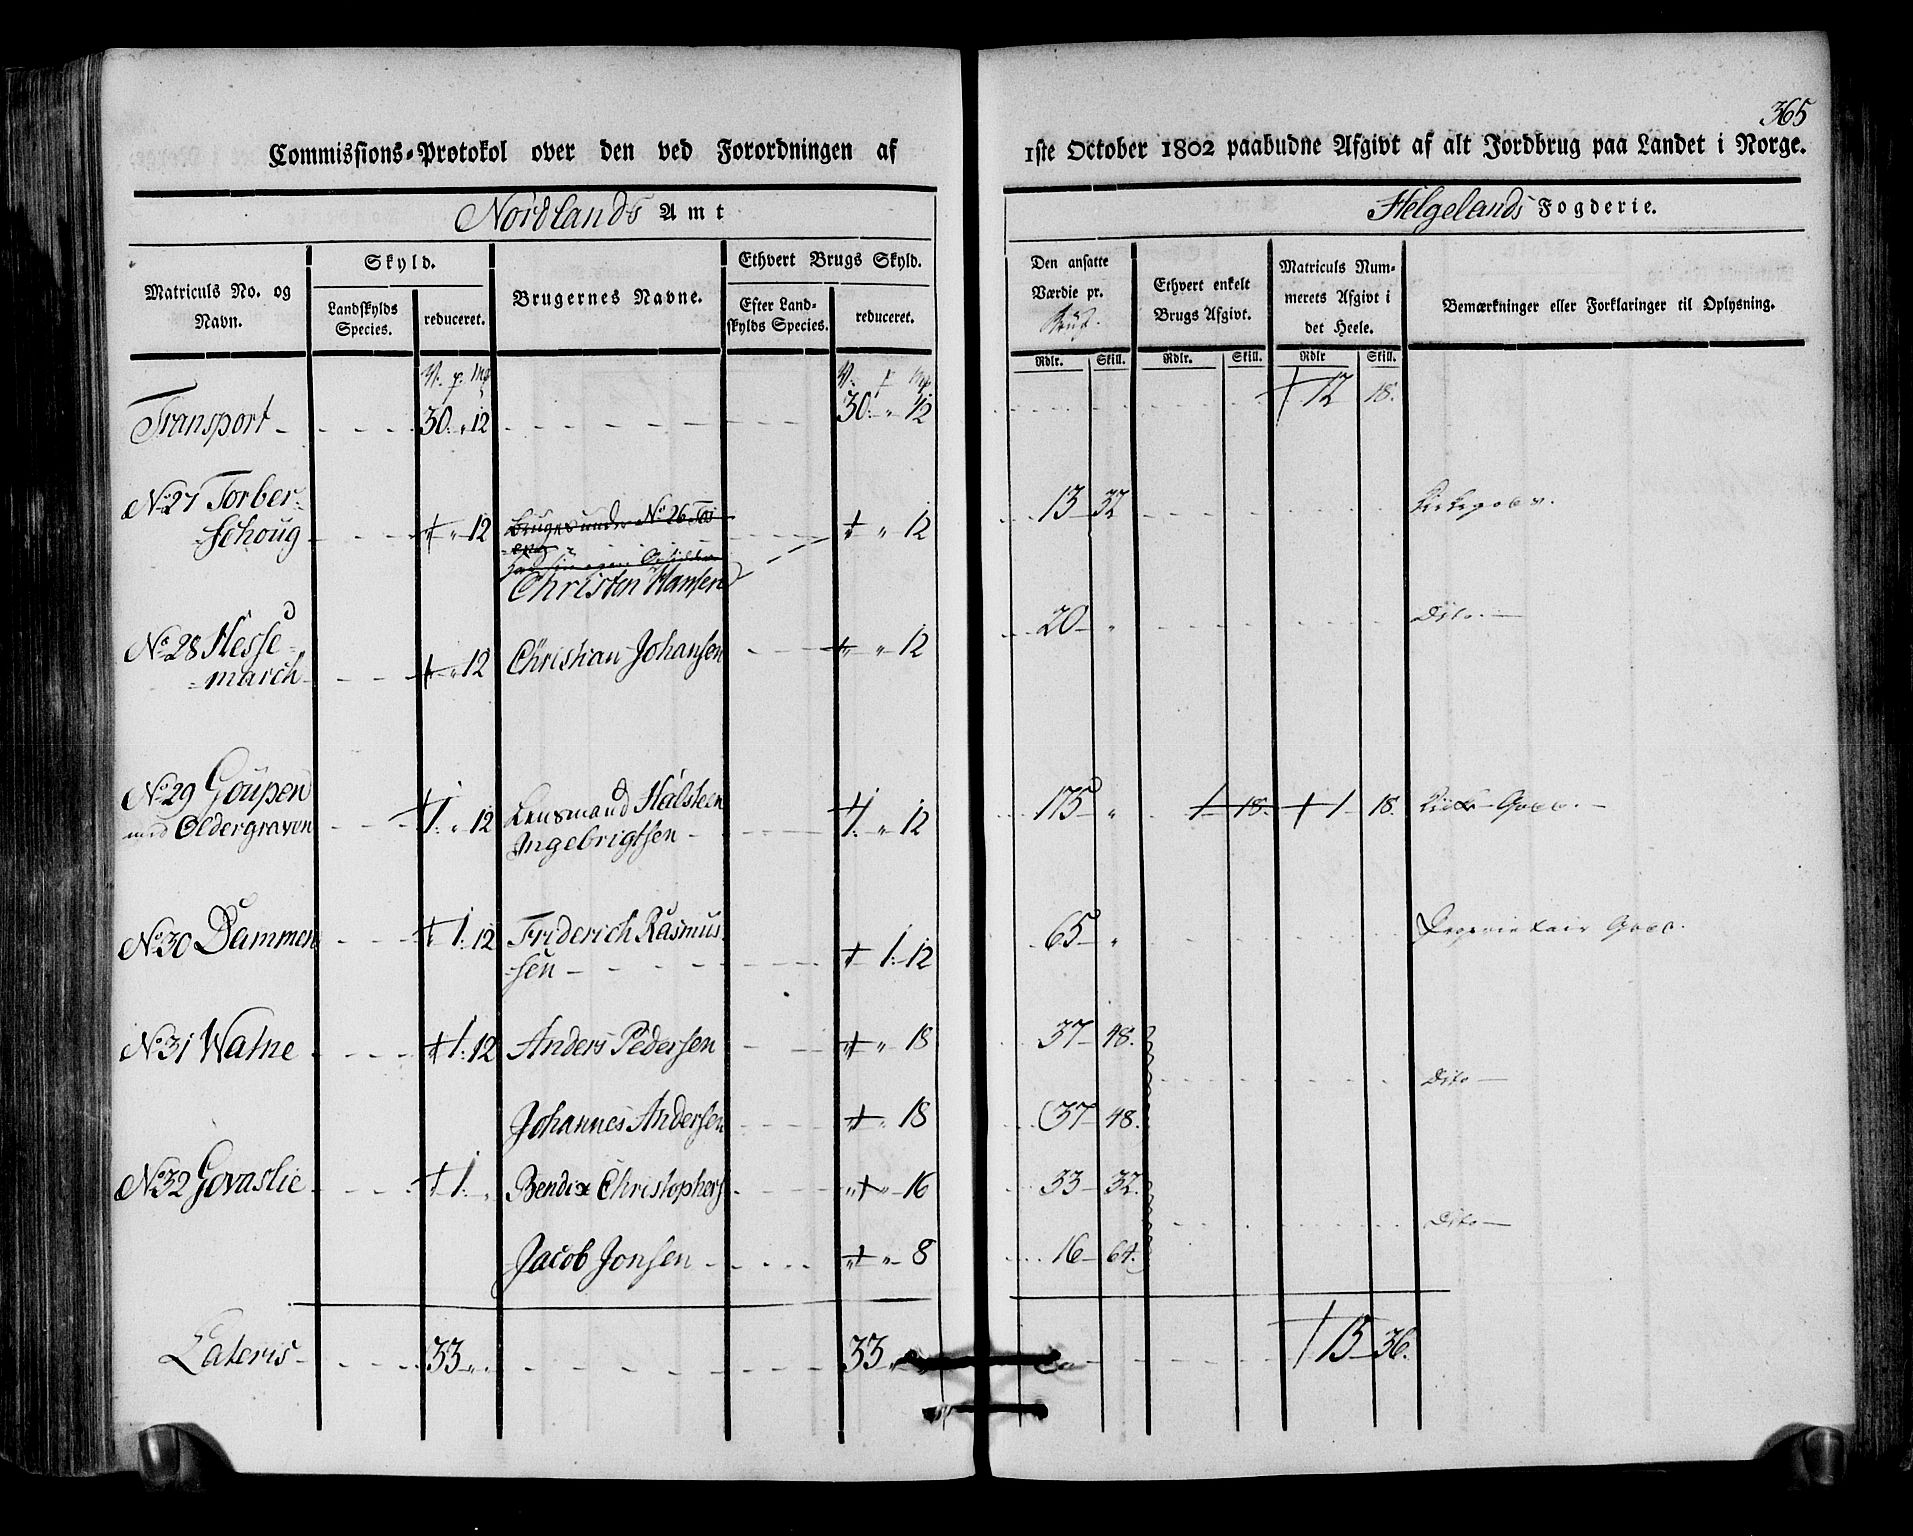 365
Commissions-Protokol over den ved Forordningen af 1ste October 1802 paabudne Afgivt af alt Jordbrug paa Landet i Norge.
Nordlands Amt
Helgelands Fogderie.
Matriculs No. og Navn.
Skyld.
Landskylds Species.
reduceret.
Brugernes Navne.
Ethvert Brugs Skyld.
Efter Land-
skylds Species.
reduceret.
Den ansatte Værdie pr.
Rdlr. Skill.
Ethvert enkelt Brugs Afgivt.
Rdlr. Skill.
Matriculs Num-
merets Afgivt i det Heele.
Rdlr Skill.
Bemærkninger eller Forklaringer til Oplysning.
Transport 30 " 12 30 " 12 12 18.
No 27 Torber-
schoug " 12 Bruges under No 26
Christen Hansen " 12 13 32
No 28 Hesse-
march " 12 Christian Johansen " 12 20 " Dito
No 29 Goupen
med Oldergraven 1 " 12 Lensmand Halsteen
Ingebrigtsen 1 " 12 175 " 1 18. 1 18.
No 30 Dammen 1. 12 Friderich Rasmus-
sen 1. 12 65 " Proprietair Gods.
No 31 Watne 1. 12 Anders Pedersen " 18 37 48.
Dito
Johannes Andersen " 18 37 48.
No 32 Govaslie 1. " Bendix Christophers " 16 33 32.
Dito
Jacob Jonsen " 8 16 64.
Lateris 33 " " 33 " 15 36.